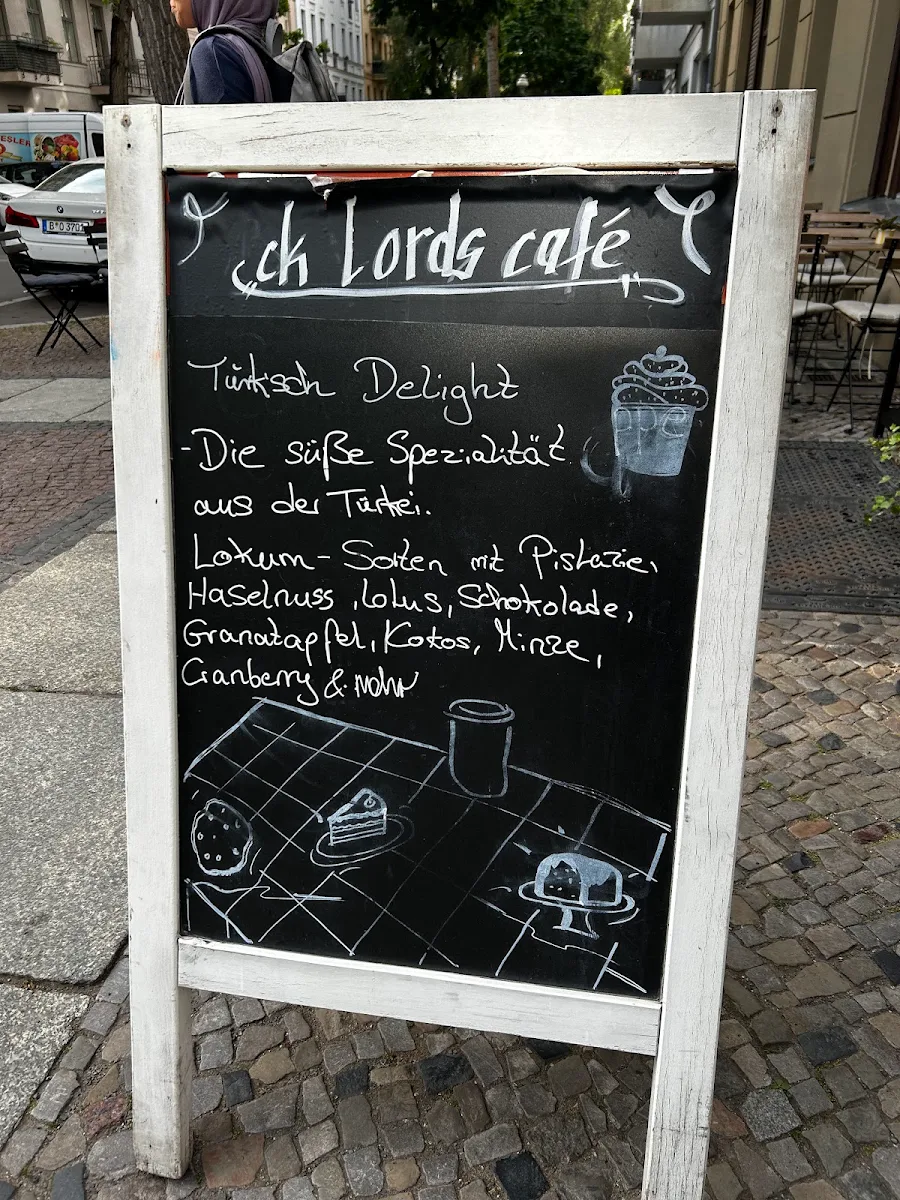 ESLER
B O 3701
ck Lords café
Türkisch Delight
- Die süße Spezialität
aus der Türkei.
Lokum - Sorten mit Pistazie,
Haselnuss, Lotus, Schokolade,
Granatapfel, Kokos, Minze,
Cranberry & mehr